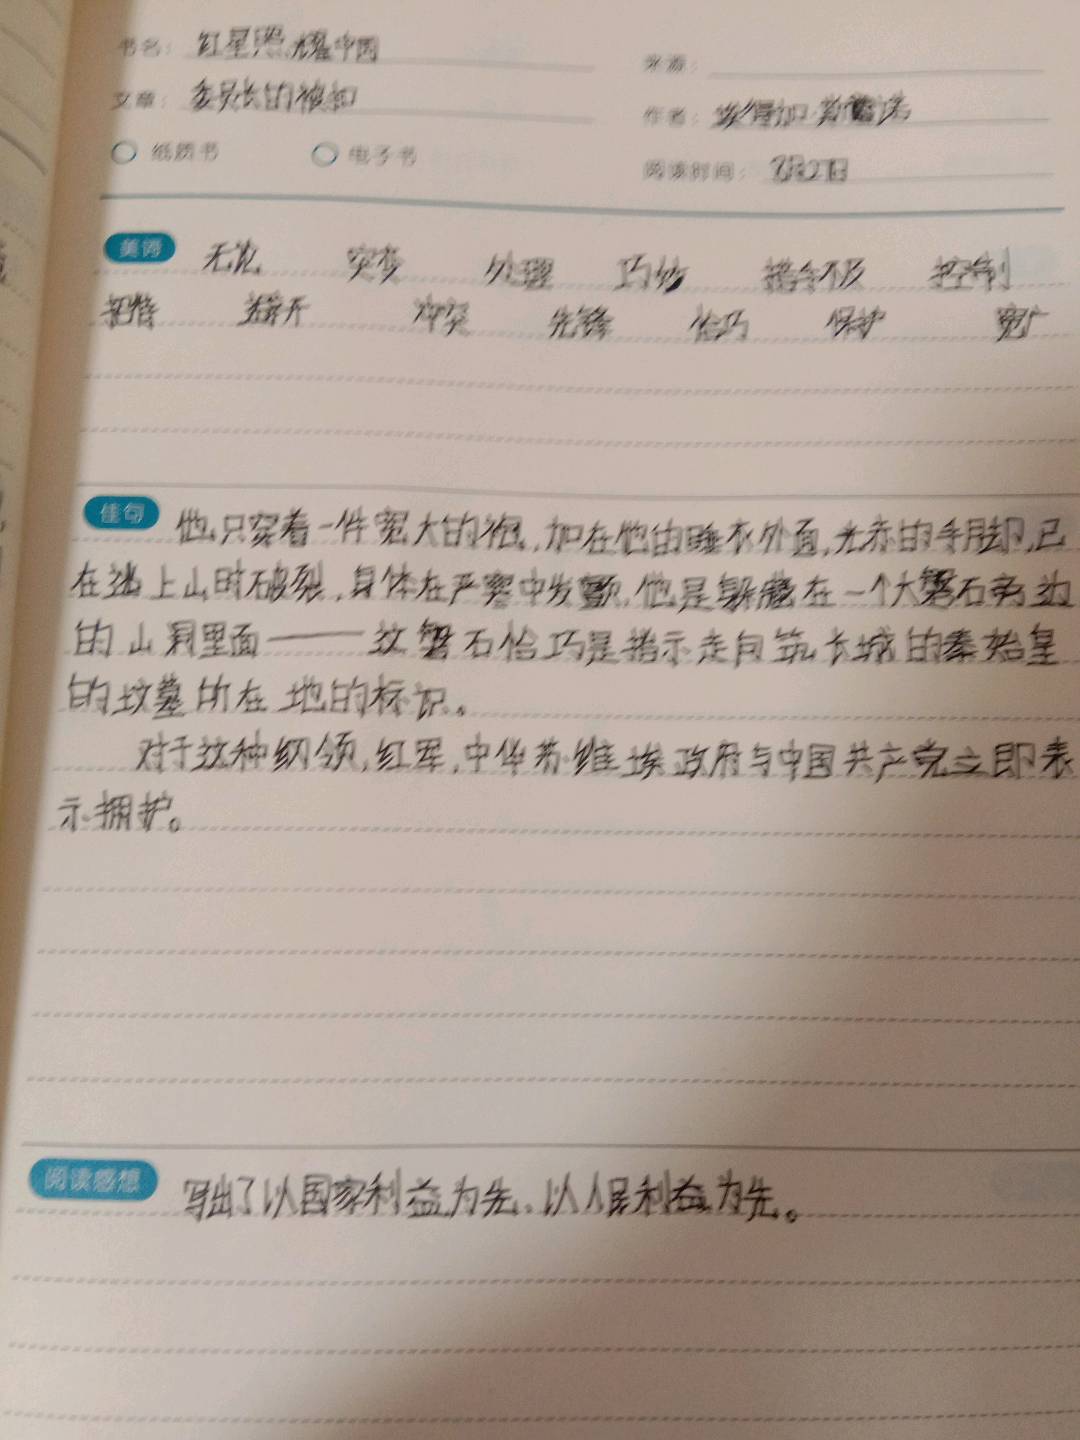 书名： 红星照耀中国
来源：
文章： 委员长的被扣
作者： 埃得加 斯诺
纸质书 电子书 阅读时间： 8月27日
美词 无论 突变 处理 巧妙 措手不及 控制
把持 避开 冲突 先锋 恰巧 保护 宽广
佳句 他只穿着一件宽大的袍,加在他的睡衣外面,光赤的手脚,已
在逃上山时破裂,身体在严寒中发颤,他是躲藏在一个大磐石旁边
的山洞里面——这磐石恰巧是指示走向筑长城的秦始皇
的坟墓所在地的标识。
对于这种纲领,红军,中华苏维埃政府与中国共产党立即表
示拥护。
阅读感想 写出了以国家利益为先、以人民利益为先。